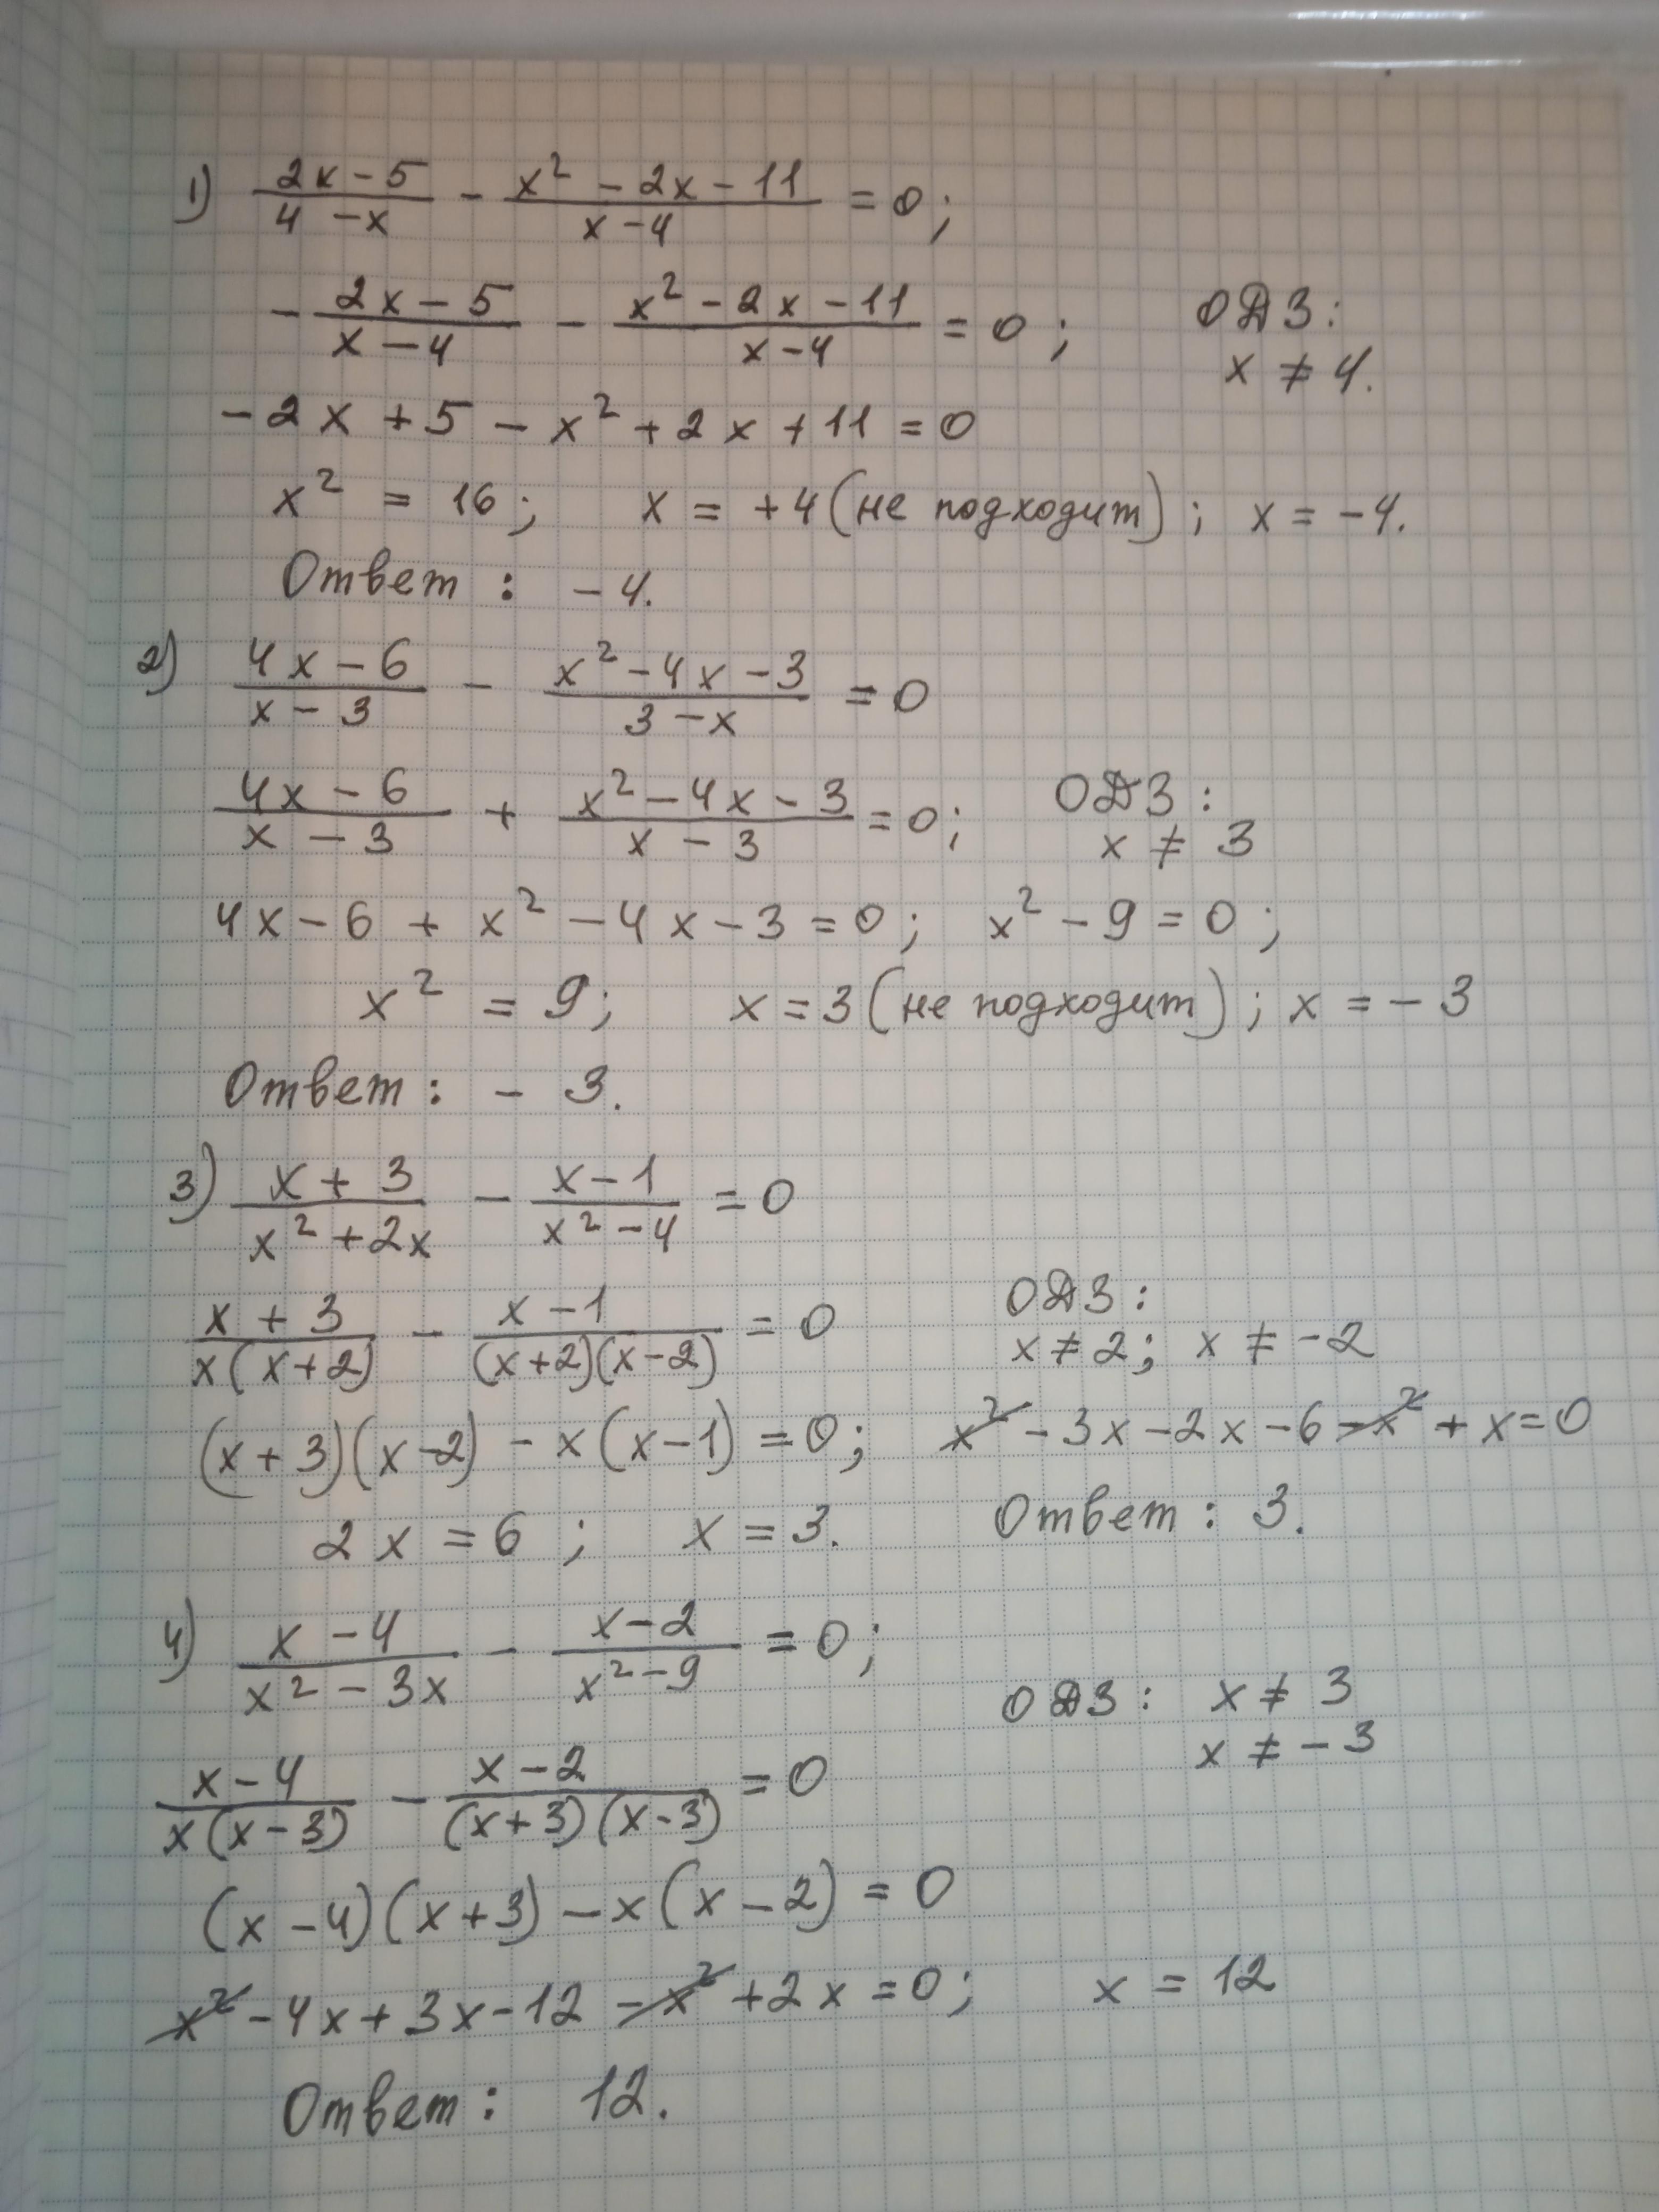 1) (2x-5)/(4-x) - (x²-2x-11)/(x-4) = 0;
-(2x-5)/(x-4) - (x²-2x-11)/(x-4) = 0; ОДЗ:
x ≠ 4.
-2x+5-x²+2x+11=0
x² = 16; x = +4 (не подходит); x = -4.
Ответ: -4.
2) (4x-6)/(x-3) - (x²-4x-3)/(3-x) = 0
(4x-6)/(x-3) + (x²-4x-3)/(x-3) = 0; ОДЗ:
x ≠ 3
4x-6+x²-4x-3=0; x²-9=0;
x² = 9; x = 3 (не подходит); x = -3
Ответ: -3.
3) (x+3)/(x²+2x) - (x-1)/(x²-4) = 0
(x+3)/(x(x+2)) - (x-1)/((x+2)(x-2)) = 0 ОДЗ:
x ≠ 2; x ≠ -2
(x+3)(x-2) - x(x-1) = 0; x²-3x-2x-6-x²+x=0
2x = 6; x = 3. Ответ: 3.
4) (x-4)/(x²-3x) - (x-2)/(x²-9) = 0;
ОДЗ: x ≠ 3
x ≠ -3
(x-4)/(x(x-3)) - (x-2)/((x+3)(x-3)) = 0
(x-4)(x+3) - x(x-2) = 0
x²-4x+3x-12-x²+2x=0; x = 12
Ответ: 12.